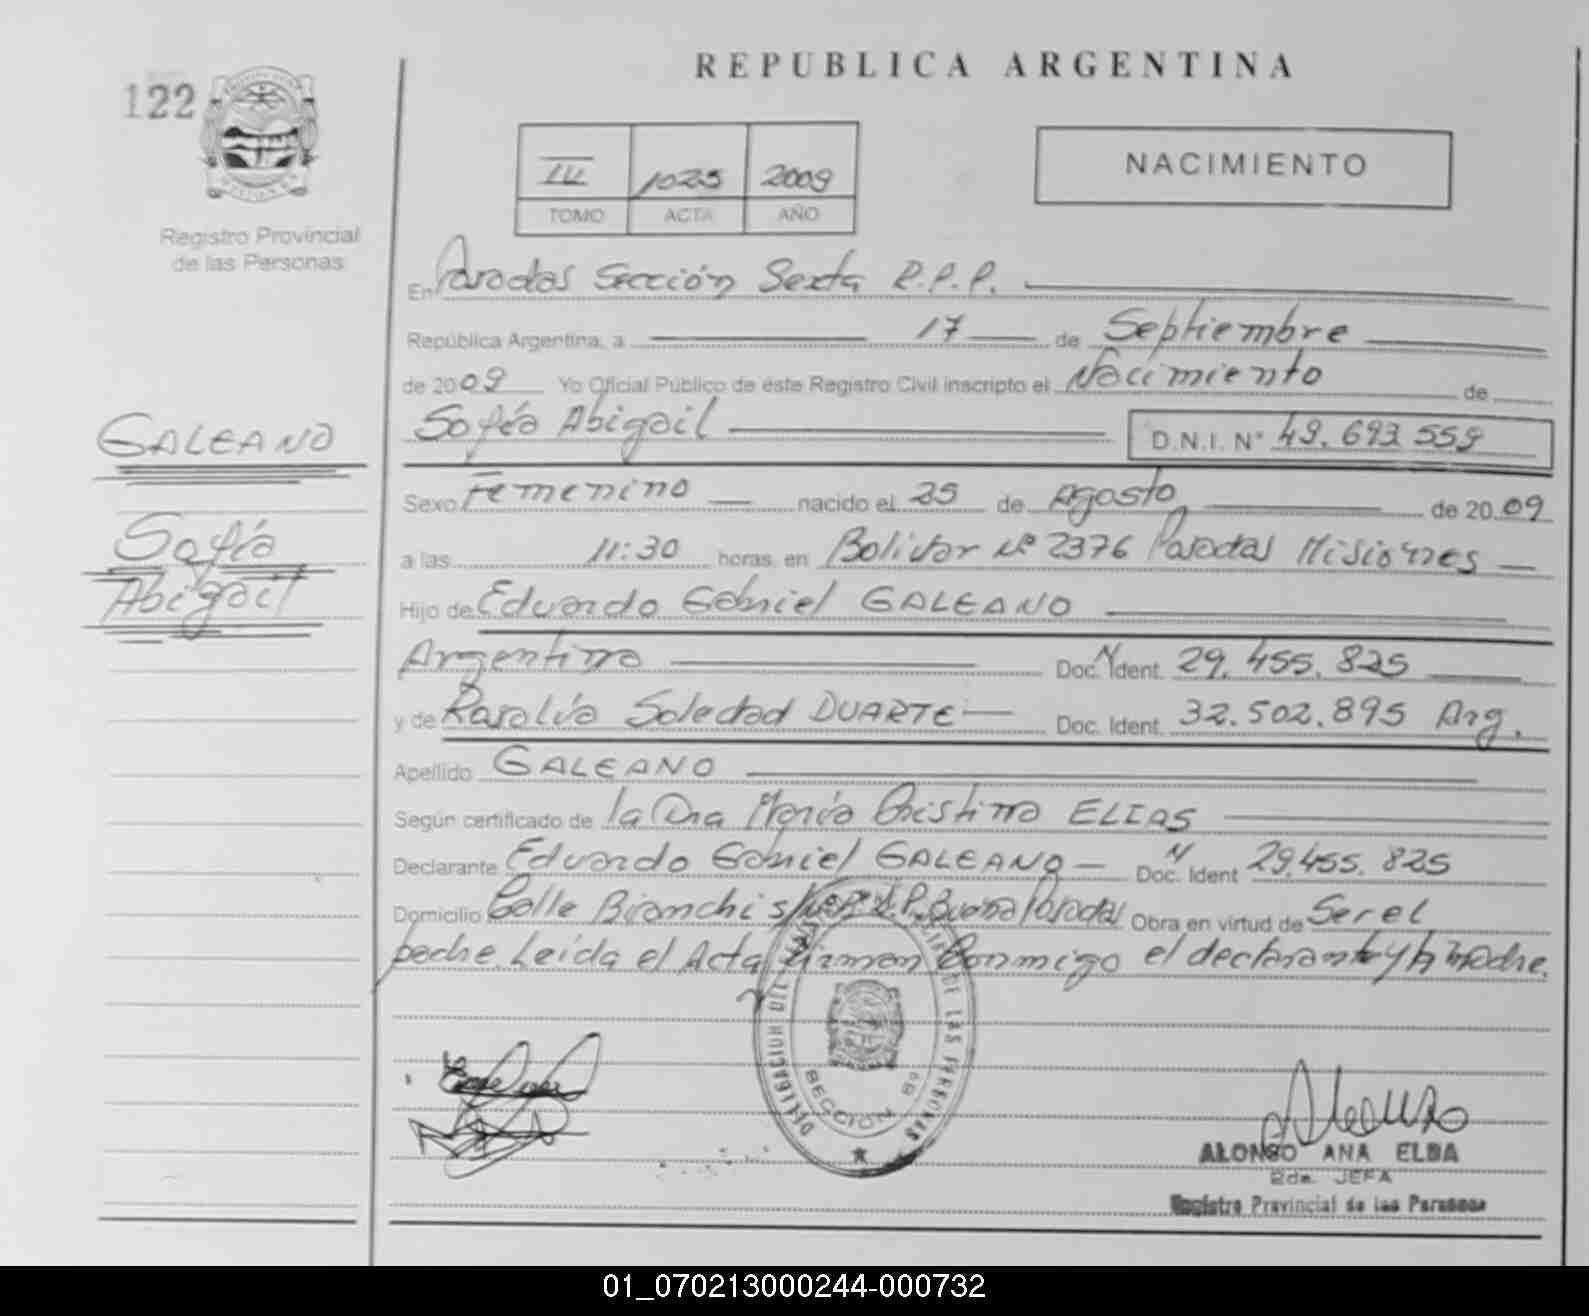 122
Registro Provincial
de las Personas
GALEANO
Sofía
Abigail
REPUBLICA ARGENTINA
III 1025 2009
TOMO ACTA AÑO
NACIMIENTO
En Posadas Sección Sexta R.P.P.
República Argentina, a 17 de Septiembre
de 2009 Yo Oficial Público de éste Registro Civil inscripto el Nacimiento de
Sofía Abigail D.N.I. N° 49.693.559
Sexo Femenino nacido el 25 de Agosto de 2009
a las 11:30 horas, en Bolivar Nº 2376 Posadas Misiones
Hijo de Eduardo Gabriel GALEANO
Argentina Doc. N Ident. 29.455.825
y de Rosalía Soledad DUARTE Doc. Ident. 32.502.895 Arg.
Apellido GALEANO
Según certificado de la Dra María Cristina ELIAS
Declarante Eduardo Gabriel GALEANO Doc. N Ident 29.455.825
Domicilio Calle Bianchi Posadas Obra en virtud de Ser el
padre. Leída el Acta Firman Conmigo el declarante y la Madre.
DELEGACION DE LAS PERSONAS
SECCION
ALONSO ANA ELBA
2da. JEFA
Registro Provincial de las Personas
01_070213000244-000732